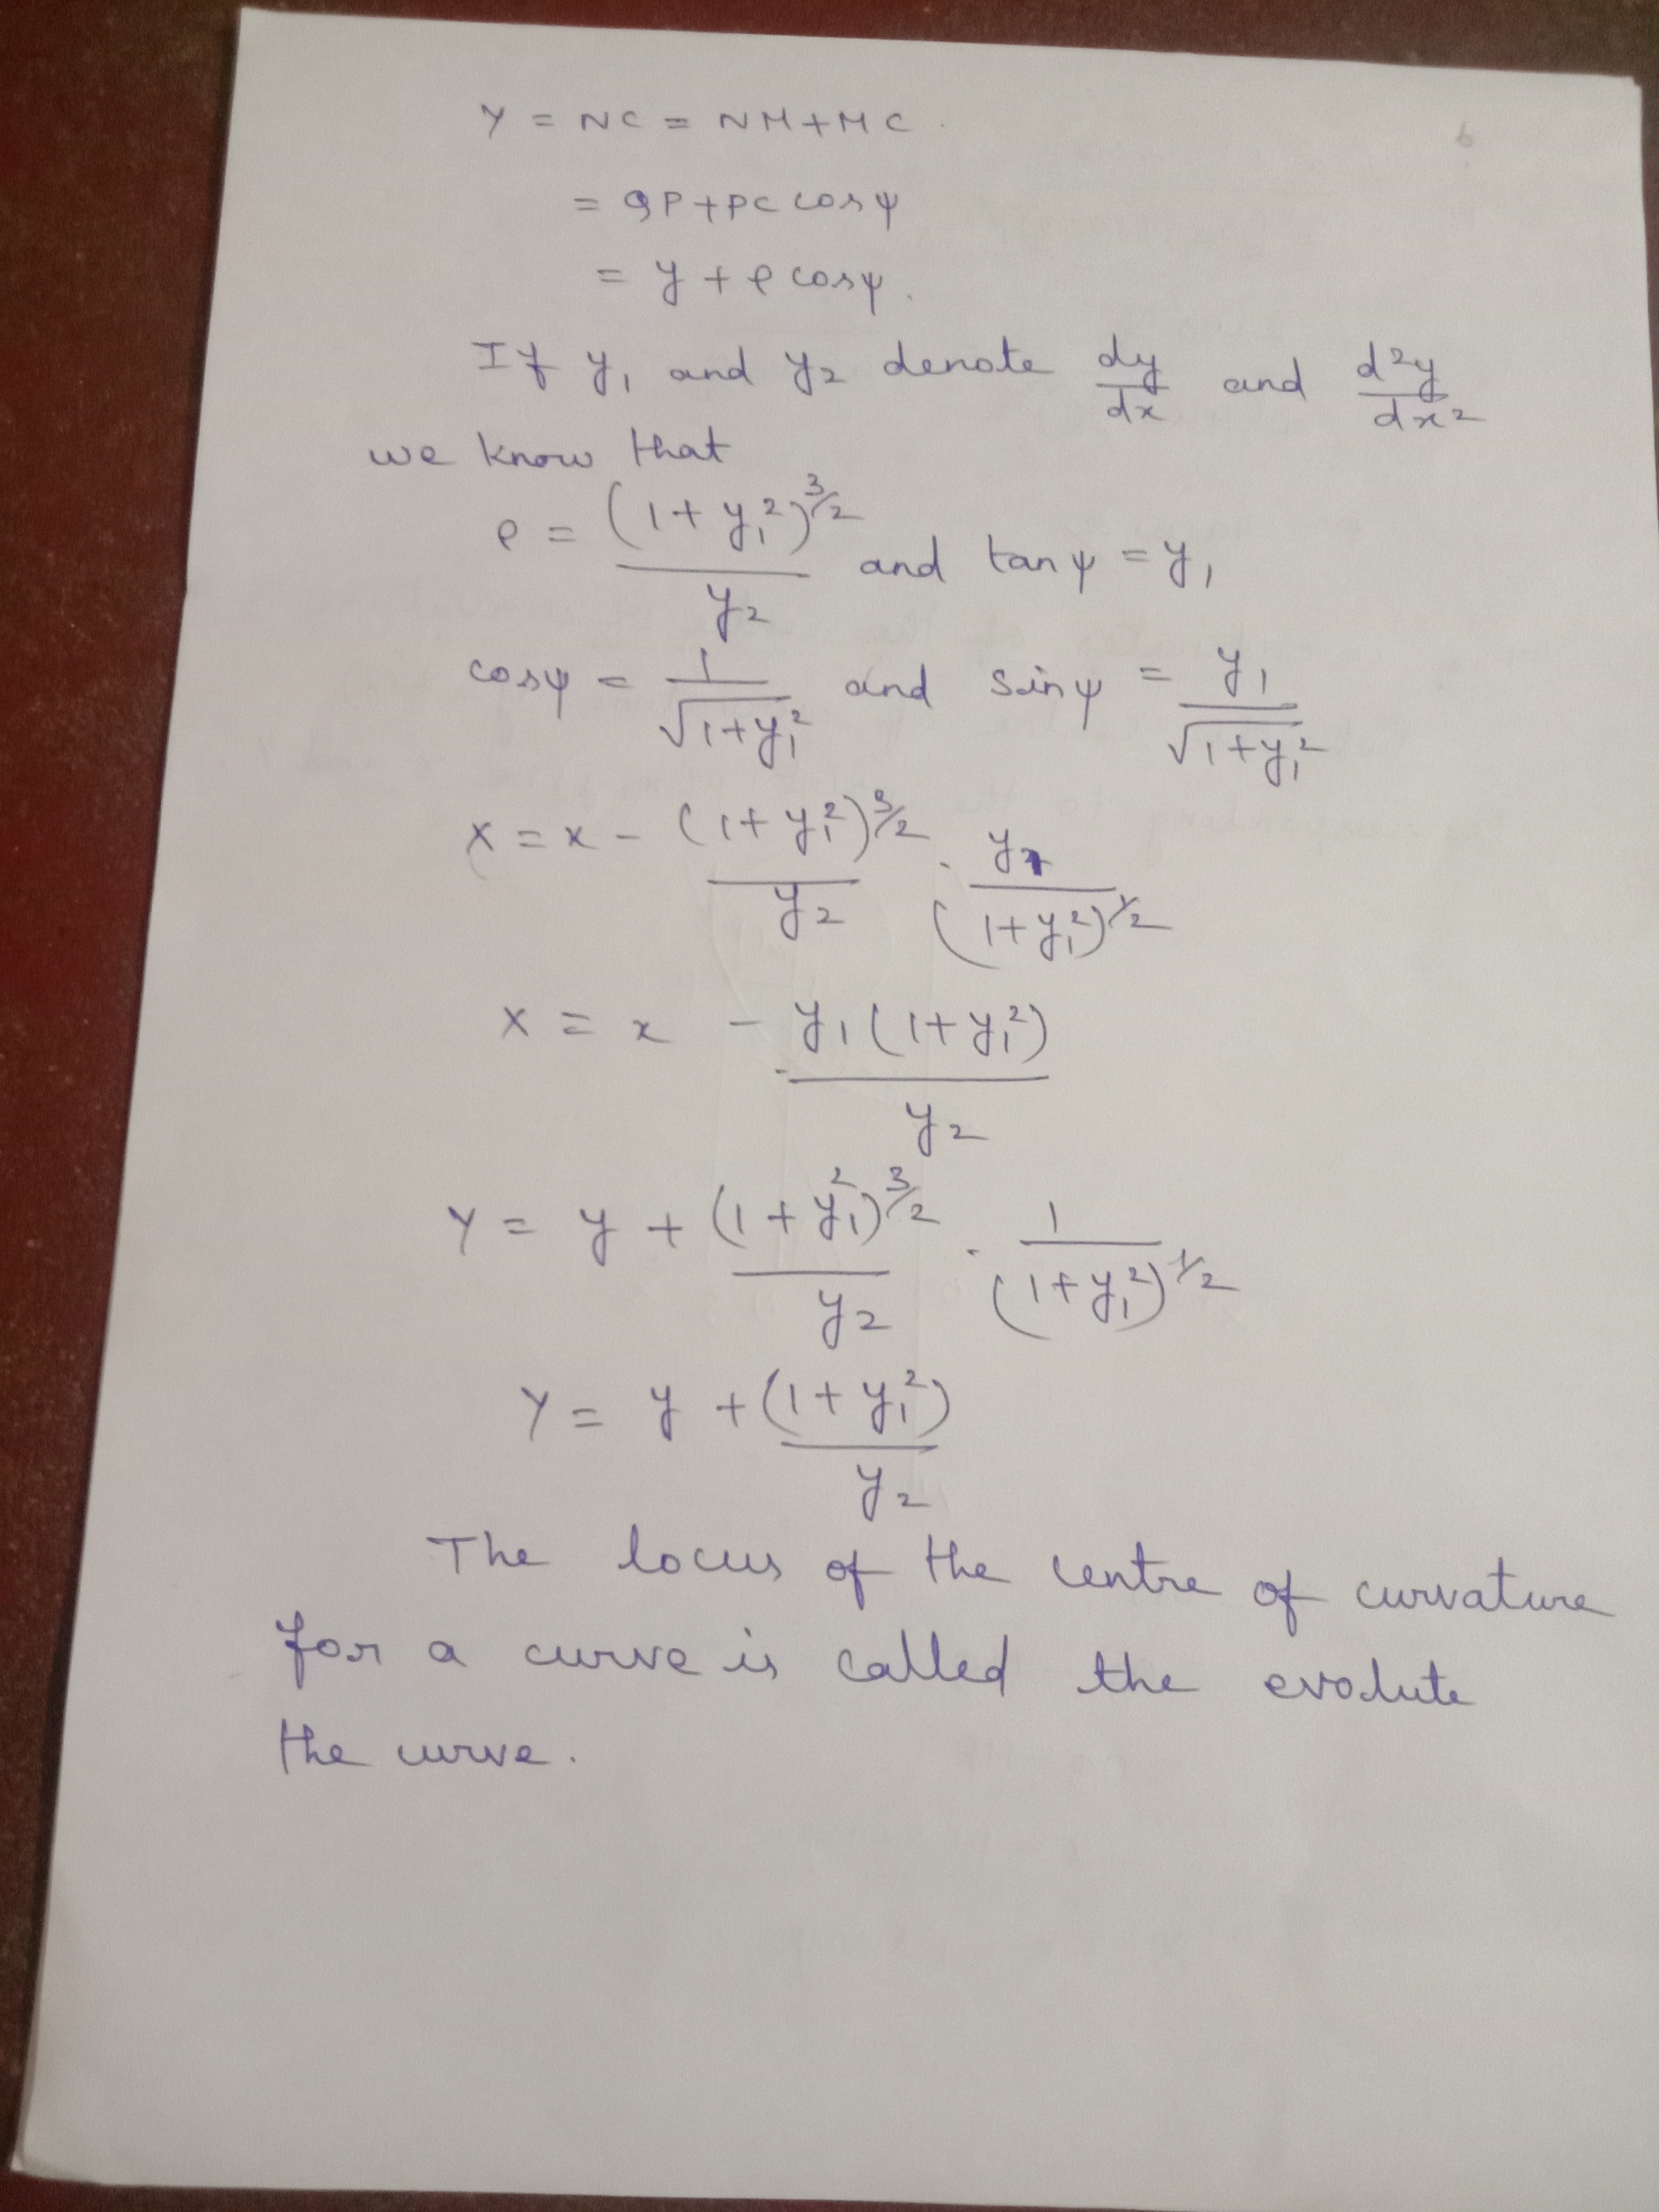 Y = NC = NM + MC.
= QP + PC cosψ
= y + ρ cosψ.
If y₁ and y₂ denote dy/dx and d²y/dx²
we know that
ρ = (1 + y₁²)^3/2 / y₂ and tanψ = y₁
cosψ = 1/√1+y₁² and sinψ = y₁/√1+y₁²
X = x - (1 + y₁²)^3/2 / y₂ . y₁/(1+y₁²)^1/2
X = x - y₁(1+y₁²) / y₂
Y = y + (1 + y₁²)^3/2 / y₂ . 1/(1+y₁²)^1/2
Y = y + (1 + y₁²) / y₂
The locus of the centre of curvature
for a curve is called the evolute
the curve.